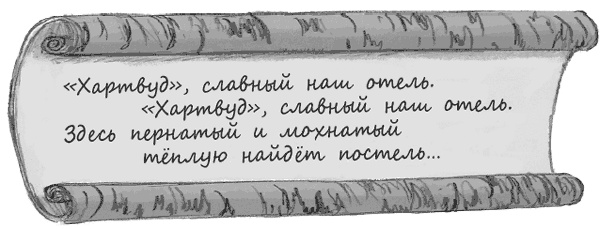 «Хартвуд», славный наш отель.
«Хартвуд», славный наш отель.
Здесь пернатый и мохнатый
тёплую найдёт постель...